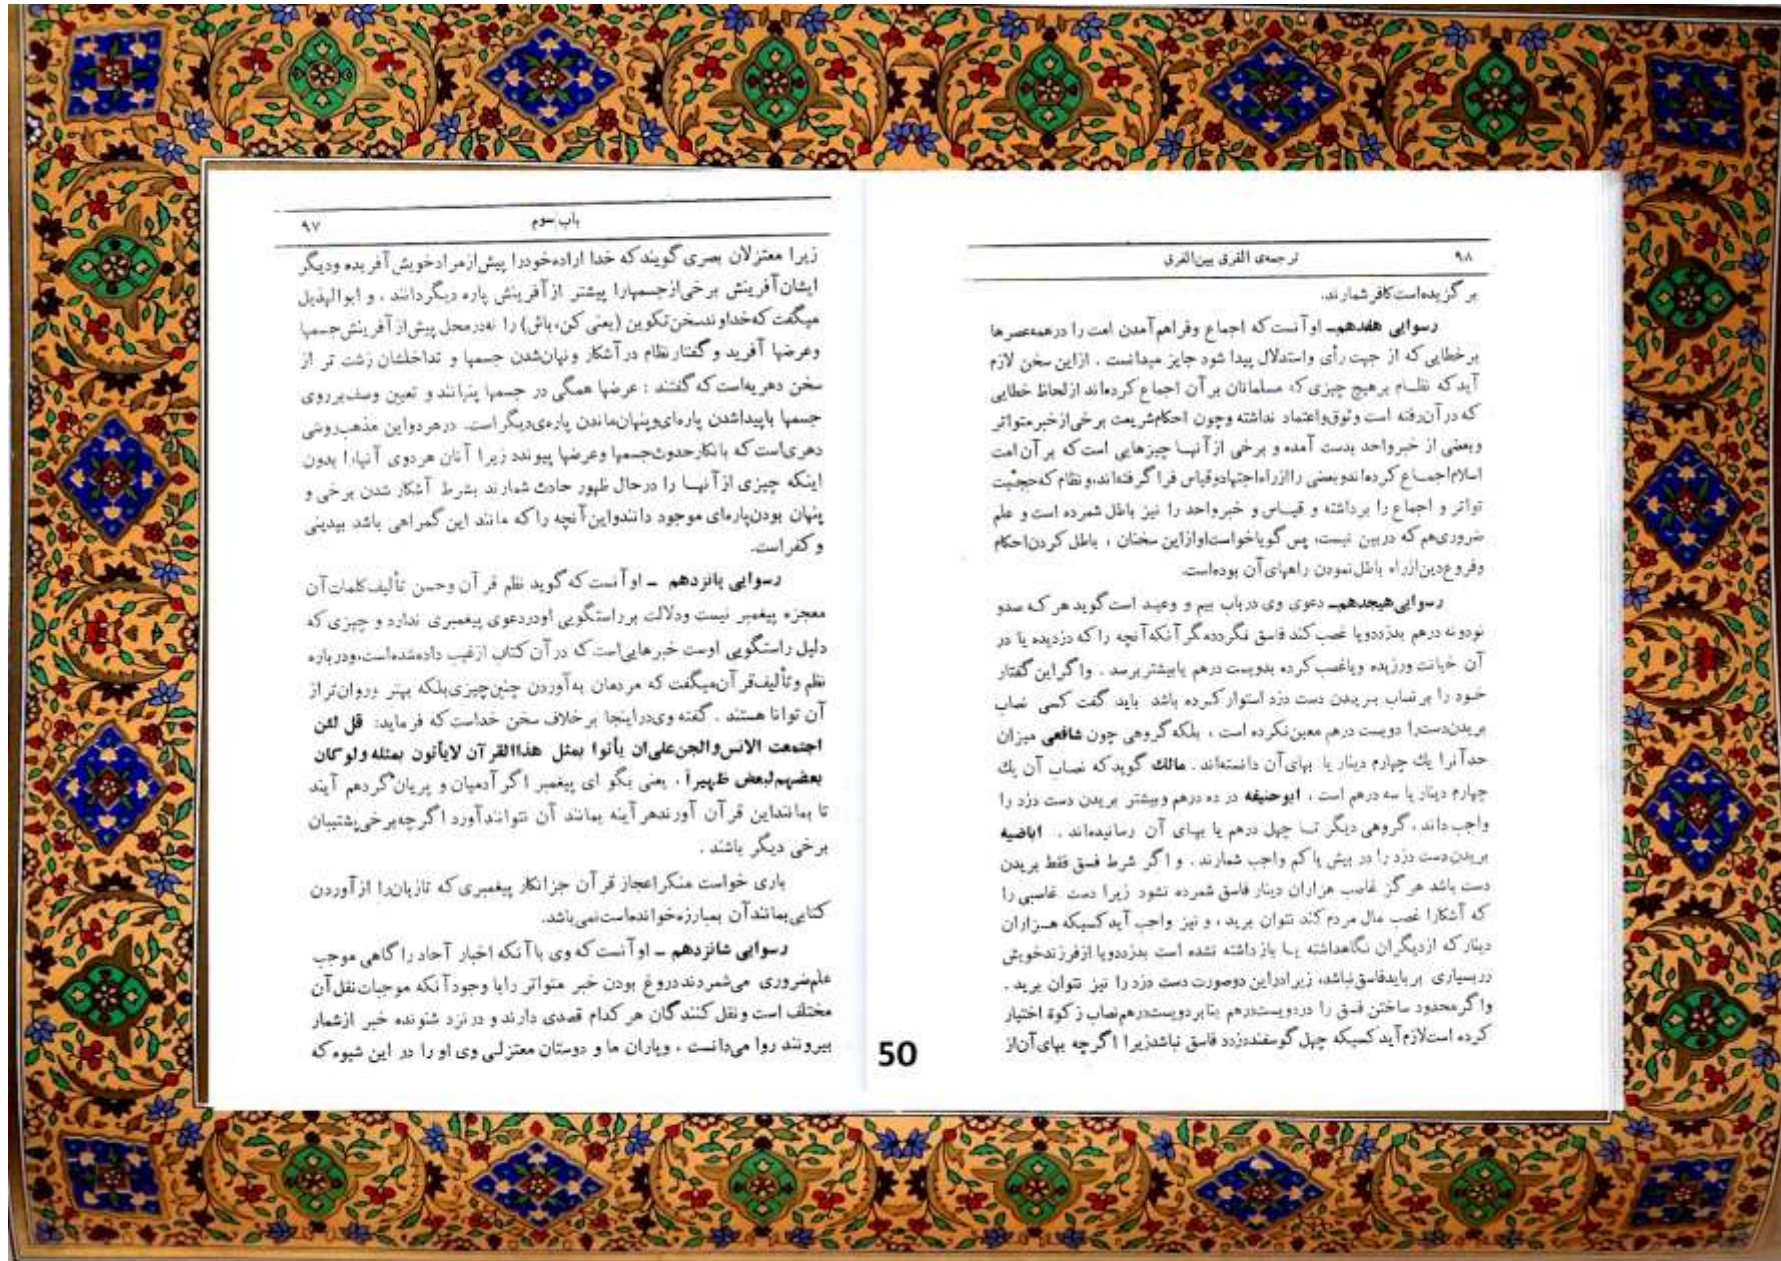 باب سوم ۹۷
زیرا معتزلان بصری گویند که خدا اراده خود را پیش از مراد خویش آفریده و دیگر
ایشان آفرینش برخی از جسمها را پیشتر از آفرینش پاره دیگر دانند ، و ابوالهذیل
میگفت که خداوند سخن تکوین (یعنی کن، باش) را نه در محل پیش از آفرینش جسمها
وعرضها آفرید و گفتار نظام در آشکار و نهان‌شدن جسمها و تداخلشان زشت تر از
سخن دهریه است که گفتند : عرضها همگی در جسمها پنهانند و تعیین وصف بر روی
جسمها با پیدا شدن پاره‌ای و پنهان ماندن پاره‌ی دیگر است. در هر دو این مذهب روشی
دهری است که با نکار حدوث جسمها وعرضها پیوندد زیرا آنان هر دوی آنها را بدون
اینکه چیزی از آنهــا را در حال ظهور حادث شمارند بشرط آشکار شدن برخی و
پنهان بودن پاره‌ای موجود دانند و این آنچه را که مانند این گمراهی باشد بیدینی
و کفر است.
رسوایی پانزدهم – او آنست که گوید نظم قرآن وحسن تألیف کلمات آن
معجزه پیغمبر نیست ودلالت بر راستگویی او در دعوی پیغمبری ندارد و چیزی که
دلیل راستگویی اوست خبرهایی است که در آن کتاب از غیب داده شده است، و در باره
نظم و تألیف قرآن میگفت که مردمان به آوردن چنین چیزی بلکه بهتر و روان‌تر از
آن توانا هستند . گفته وی در اینجا بر خلاف سخن خداست که فرماید: قل لئن
اجتمعت الانس والجن علی ان یأتوا بمثل هذا القرآن لایأتون بمثله ولو کان
بعضهم لبعض ظهیراً ، یعنی بگو ای پیغمبر اگر آدمیان و پریان گرد هم آیند
تا بمانند این قرآن آورند هر آینه بمانند آن نتوانند آورد اگر چه برخی پشتیبان
برخی دیگر باشند .
باری خواست منکر اعجاز قرآن جز انکار پیغمبری که تازیان را از آوردن
کتابی بمانند آن بمبارزه خوانده است نمی باشد.
رسوایی شانزدهم – او آنست که وی با آنکه اخبار آحاد را گاهی موجب
علم ضروری می‌شمردند دروغ بودن خبر متواتر را با وجود آنکه موجبات نقل آن
مختلف است و نقل کنندگان هر کدام قصدی دارند و در نزد شنونده خبر از شمار
بیرونند روا می‌دانست ، ویاران ما و دوستان معتزلی وی او را در این شیوه که
۹۸ ترجمه‌ی الفرق بین الفرق
برگزیده است کافر شمارند.
رسوایی هفدهم– او آنست که اجماع وفراهم آمدن امت را در همه عصرها
بر خطایی که از جهت رأی واستدلال پیدا شود جایز میدانست . از این سخن لازم
آید که نظــام بر هیچ چیزی که مسلمانان بر آن اجماع کرده‌اند از لحاظ خطایی
که در آن رفته است وثوق واعتماد نداشته وچون احکام شریعت برخی از خبر متواتر
وبعضی از خبر واحد بدست آمده و برخی از آنهــا چیزهایی است که بر آن امت
اسلام اجمــاع کرده‌اند و بعضی را از راه اجتهاد و قیاس فرا گرفته‌اند، و نظام که حجیّت
تواتر و اجماع را برداشته و قیــاس و خبر واحد را نیز باطل شمرده است و علم
ضروری هم که در بین نیست، پس گویا خواست او از این سخنان ، باطل کردن احکام
وفروع دین از راه باطل نمودن راههای آن بوده است.
رسوایی هیجدهم– دعوی وی در باب بیم و وعیـد است گوید هر کـه صد و
نود و نه درهم بدزدد و یا غصب کند فاسق نگردد مگر آنکه آنچه را که دزدیده یا در
آن خیانت ورزیده و یا غصب کرده بدویست درهم یا بیشتر برسد . و اگر این گفتار
خـود را بر نصاب بـریـدن دست دزد استوار کـرده باشد باید گفت کسی نصاب
بریدن دست را دویست درهم معین نکرده است ، بلکه گروهی چون شافعی میزان
حد آنرا یك چهارم دینار یا بهای آن دانسته‌اند . مالك گوید که نصاب آن یك
چهارم دینار یا سه درهم است ، ابوحنیفه در ده درهم وبیشتر بریدن دست دزد را
واجب داند ، گروهی دیگر تــا چهل درهم یا بهای آن رسانیده‌اند . اباضیه
بریدن دست دزد را در بیش یا کم واجب شمارند . و اگر شرط فسق فقط بریدن
دست باشد هرگز غاصب هزاران دینار فاسق شمرده نشود زیرا دست غاصبی را
که آشکارا غصب مال مردم کند نتوان برید ، و نیز واجب آید کسیکه هــزاران
دینار که از دیگران نگاهداشته یــا باز داشته نشده است بدزدد و یا از فرزند خویش
در بسیاری برباید فاسق نباشد، زیرا در این دو صورت دست دزد را نیز نتوان برید .
و اگر محدود ساختن فسق را در دویست درهم بنا بر دویست درهم نصاب زکوة اختیار
کرده است لازم آید کسیکه چهل گوسفند دزدد فاسق نباشد زیرا اگر چه بهای آن از
50